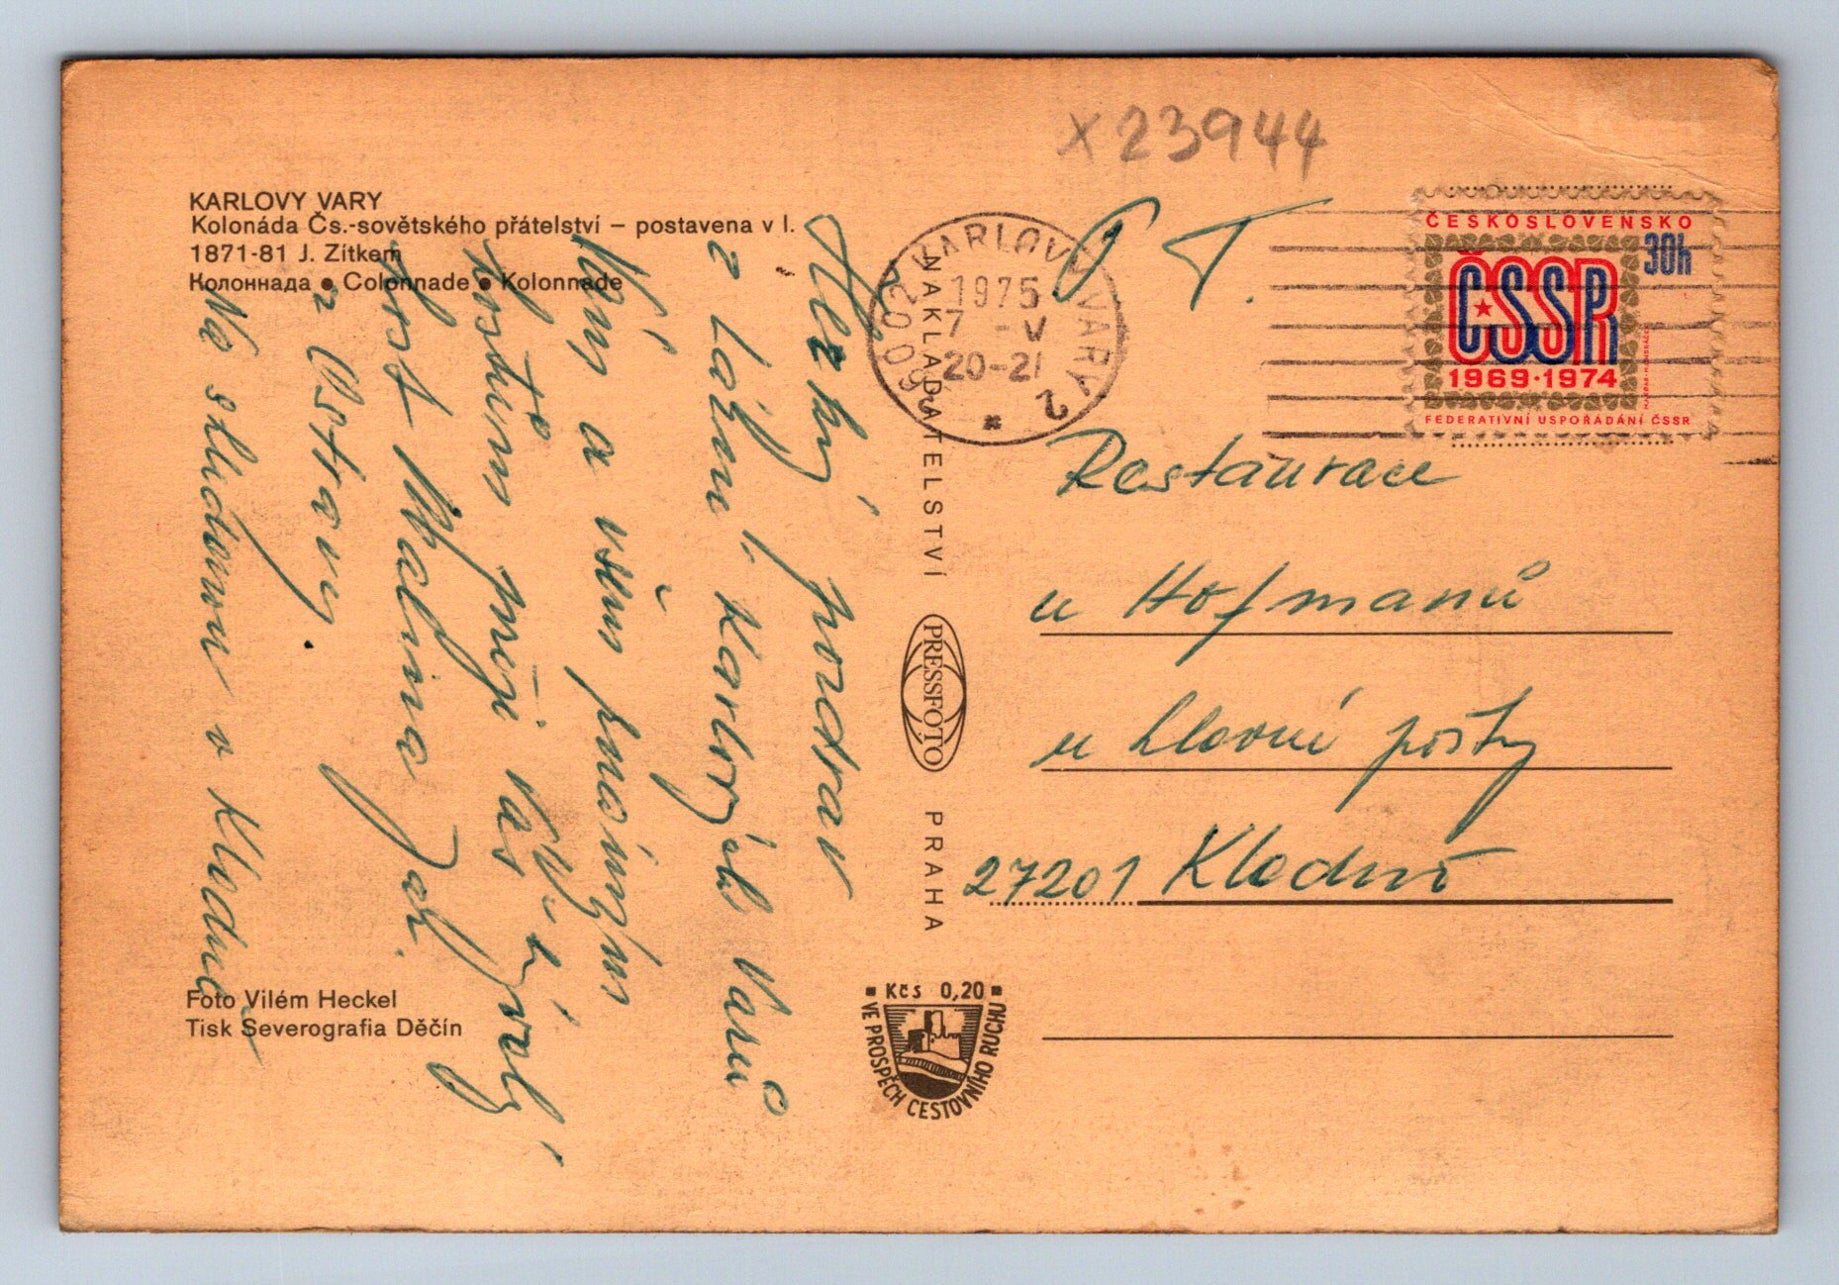 KARLOVY VARY
Kolonáda Čs.-sovětského přátelství – postavena v l.
1871-81 J. Zítkem
Колоннада ● Colonnade ● Kolonnade
Hezký pozdrav
z Lázní Karlových Varů
Vám a všem
hostům přeje Váš
host Malina
z Ostravy.
Na shledanou v Kladně
Foto Vilém Heckel
Tisk Severografia Děčín
NAKLADATELSTVÍ PRESSFOTO PRAHA
Kčs 0,20
VE PROSPĚCH CESTOVNÍHO RUCHU
x 23944
KARLOVY VARY 2
1975
7 -V
20-21
360 02
ČESKOSLOVENSKO
30h
ČSSR
1969·1974
FEDERATIVNÍ USPOŘÁDÁNÍ ČSSR
P. T.
Restaurace
u Hofmanů
u hlavní pošty
27201 Kladno